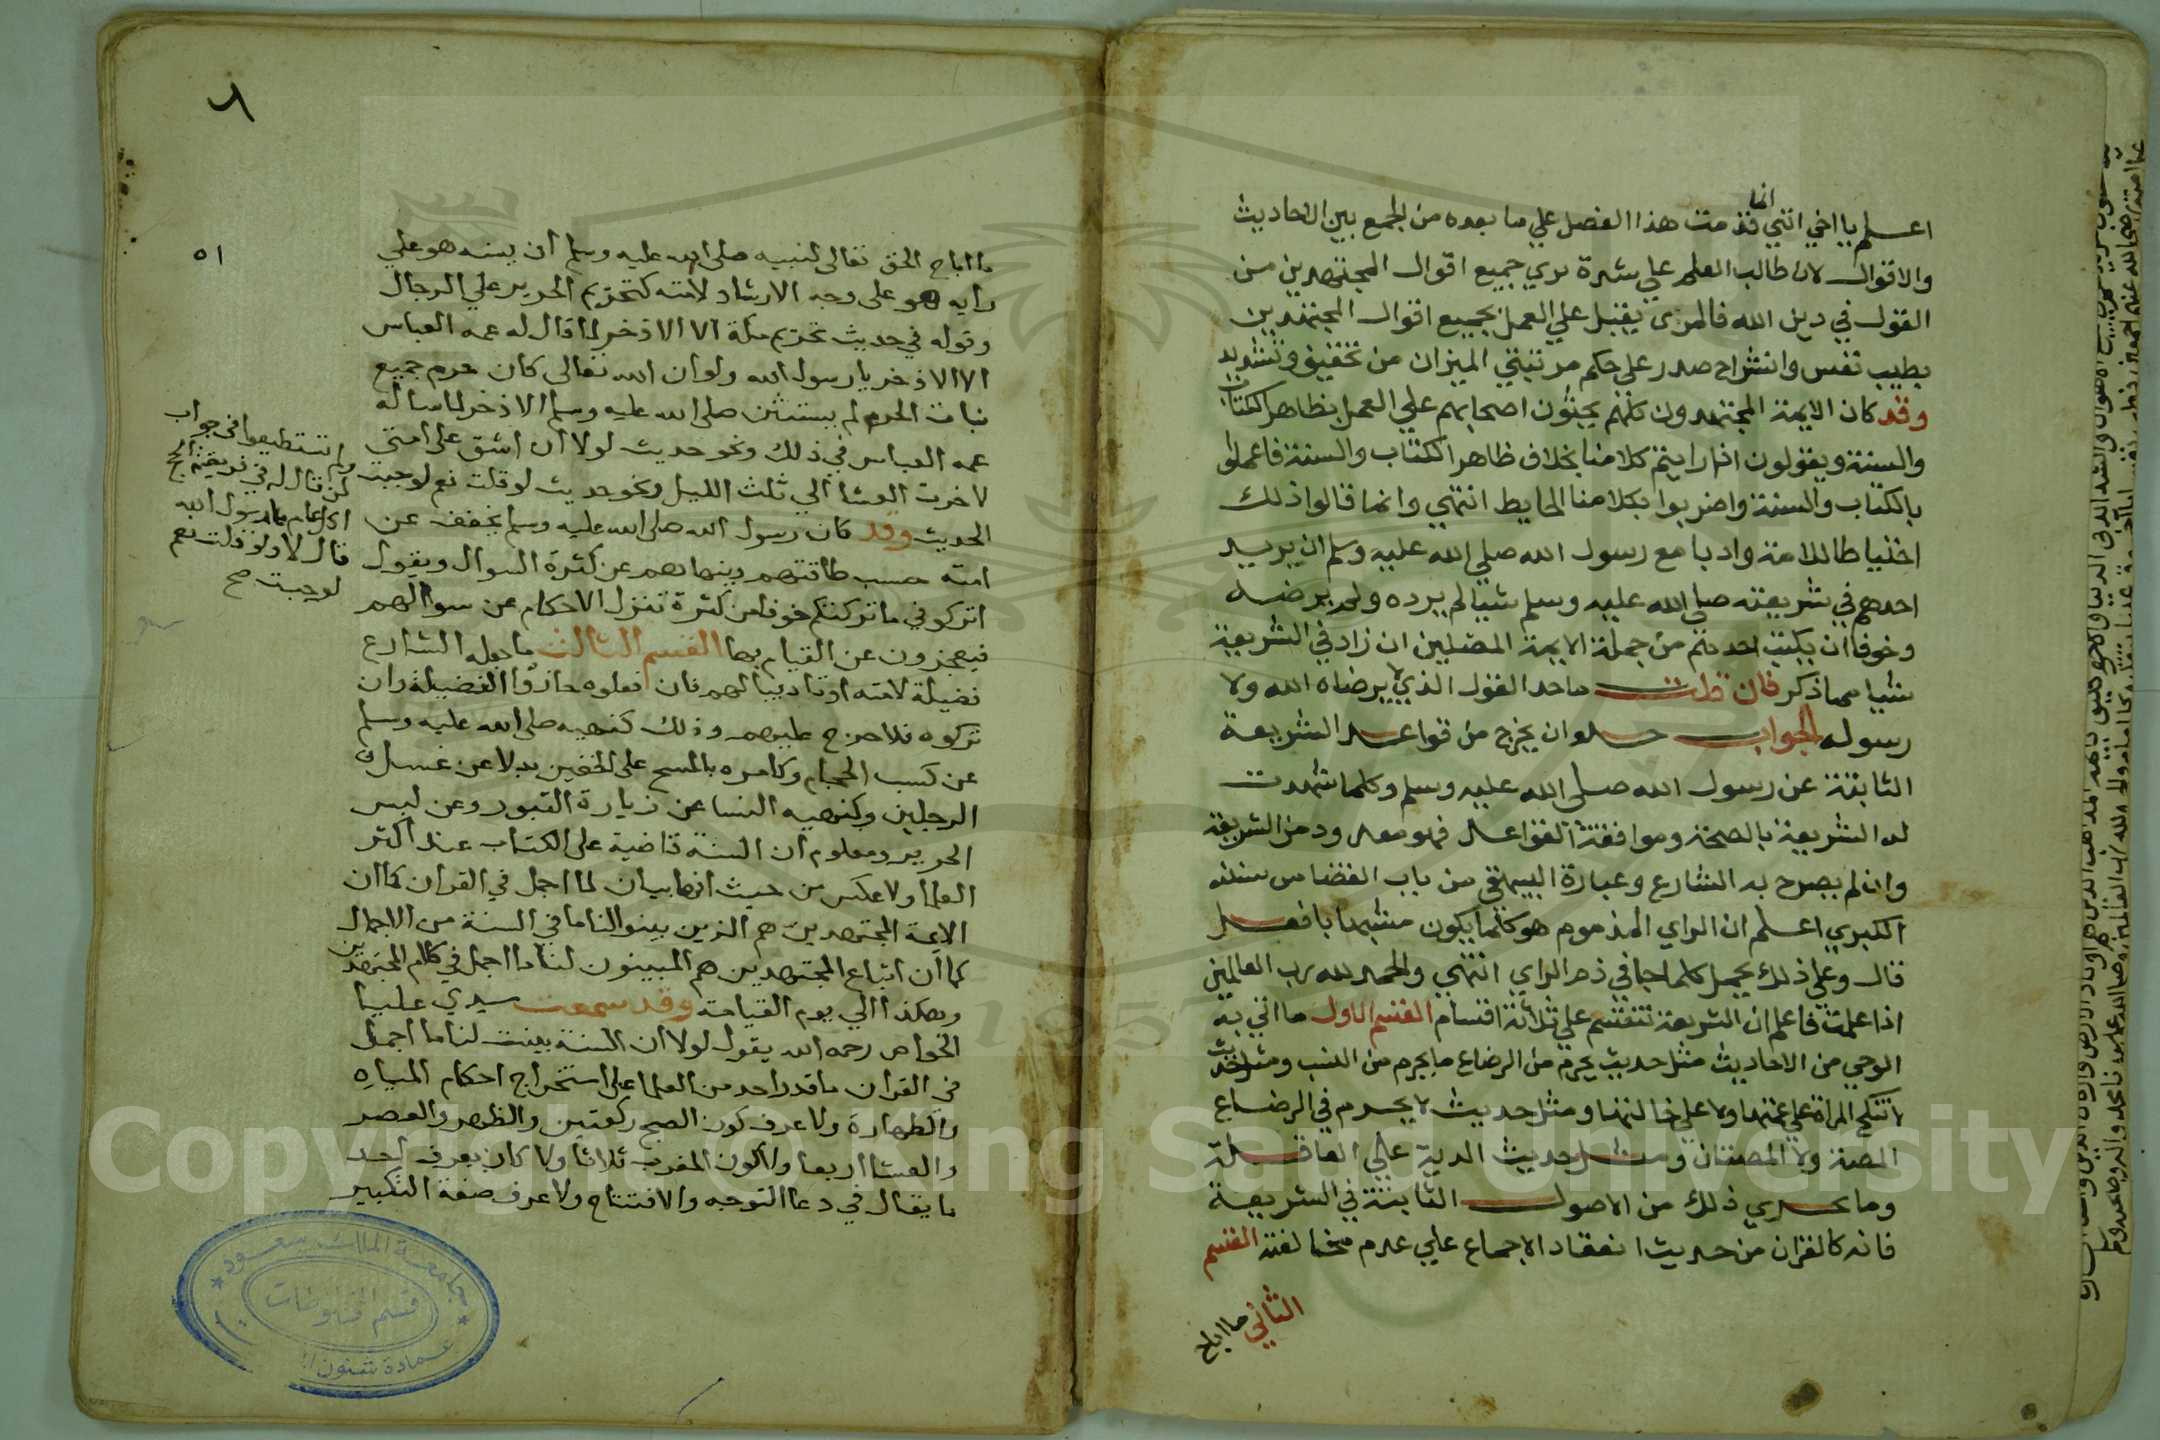 انما
اعلم يا اخي انني قدمت هذا الفصل علي ما بعده من الجمع بين الاحاديث
والاقوال لان طالب العلم علي شدة يري جميع اقوال المجتهدين من
القول في دين الله فالمرى يقبل علي العمل بجميع اقوال المجتهدين
بطيب نفس وانشراح صدر على حكم مرتبتي الميزان من تخفيف وتشديد
وقد كان الايمة المجتهدون كلهم يحثون اصحابهم علي العمل بظاهر الكتاب
والسنة ويقولون اذا رايتم كلامنا بخلاف ظاهر الكتاب والسنة فاعملوا
بالكتاب والسنة واضربوا بكلامنا الحايط انتهي وانما قالوا ذلك
احتياطا للامة وادبا مع رسول الله صلي الله عليه وسلم ان يزيد
احدهم في شريعته صلى الله عليه وسلم شيئا لم يرده ولم يرضه
وخوفا ان يكتب احدهم من جملة الايمة المضلين ان زاد في الشريعة
شيئا مما ذكر فان قلت ما حد القول الذي لا يرضاه الله ولا
رسوله الجواب حده ان يخرج من قواعد الشريعة
الثابتة عن رسول الله صلى الله عليه وسلم وكلما شهدت
له الشريعة بالصحة وموافقة القواعد فهو معدود من الشريعة
وان لم يصرح به الشارع وعبارة البيهقي من باب القضا من سننه
الكبري اعلم ان الراي المذموم هو كلما يكون مشبها باصل
قال وعلي ذلك يحمل كلما جا في ذم الراي انتهي والحمد لله رب العالمين
اذا علمت فاعلم ان الشريعة تنقسم علي ثلاثة اقسام القسم الاول ما اتي به
الوحي من الاحاديث مثل حديث يحرم من الرضاع ما يحرم من النسب ومثل حديث
لا تنكح المراة علي عمتها ولا علي خالتها ومثل حديث لا يحرم في الرضاع
المصة ولا المصتان ومثل حديث الدية علي العاقلة
وما يجري ذلك من الاصول الثابتة في الشريعة
فانه كالقران من حديث انعقاد الاجماع علي عدم مخالفته القسم
الثاني ما اباح
٥١
ما اباح الحق تعالى لنبيه صلى الله عليه وسلم ان يسنه هو على
رايه هو على وجه الارشاد لامته كتحريم الحرير علي الرجال
وقوله في حديث تحريم مكة الا الاذخر لما قال له عمه العباس
الا الاذخر يا رسول الله ولو ان الله تعالى كان حرم جميع
نبات الحرم لم يستثن صلى الله عليه وسلم الاذخر لما ساله
عمه العباس في ذلك ونحو حديث لولا ان اشق على امتي
لاخرت العشا الي ثلث الليل ونحو حديث لو قلت نعم لوجبت
الحديث وقد كان رسول الله صلى الله عليه وسلم يخفف عن
امته حسب طاقتهم وينهاهم عن كثرة السوال ويقول
اتركوني ما تركتكم خوفا من كثرة تنزل الاحكام عن سوالهم
فيعجزون عن القيام بها القسم الثالث ما جعله الشارع
فضيلة لامته او تاديبا لهم فان فعلوه حازوا الفضيلة وان
تركوه فلا حرج عليهم وذلك كنهيه صلى الله عليه وسلم
عن كسب الحجام وكامره بالمسح على الخفين بدلا عن غسل
الرجلين وكنهيه النسا عن زيارة القبور وعن لبس
الحرير ومعلوم ان السنة قاضية على الكتاب عند اكثر
العلما ولا عكس من حيث انها بيان لما اجمل في القران كما ان
الايمة المجتهدين هم الذين بينوا لنا ما في السنة من الاجمال
كما ان اتباع المجتهدين هم المبينون لنا ما اجمل في كلام المجتهدين
وهكذا الي يوم القيامة وقد سمعت سيدي عليا
الخواص رحمه الله يقول لولا ان السنة بينت لنا ما اجمل
في القران ما قدر احد من العلما على استخراج احكام المياه
والطهارة ولا عرف كون الصبح ركعتين والظهر والعصر
والعشا اربعا ولا كون المغرب ثلاثا ولا كان يعرف احد
ما يقال في دعا التوجه والافتتاح ولا عرف صفة التكبير
ولم تستطيعوا في جواب
من قال له في فريضة الحج
اكل عام يا رسول الله
قال لا ولو قلت نعم
لوجبت صح
جامعة الملك سعود
قسم المخطوطات
عمادة شئون
Copyright © King Saud University
1957